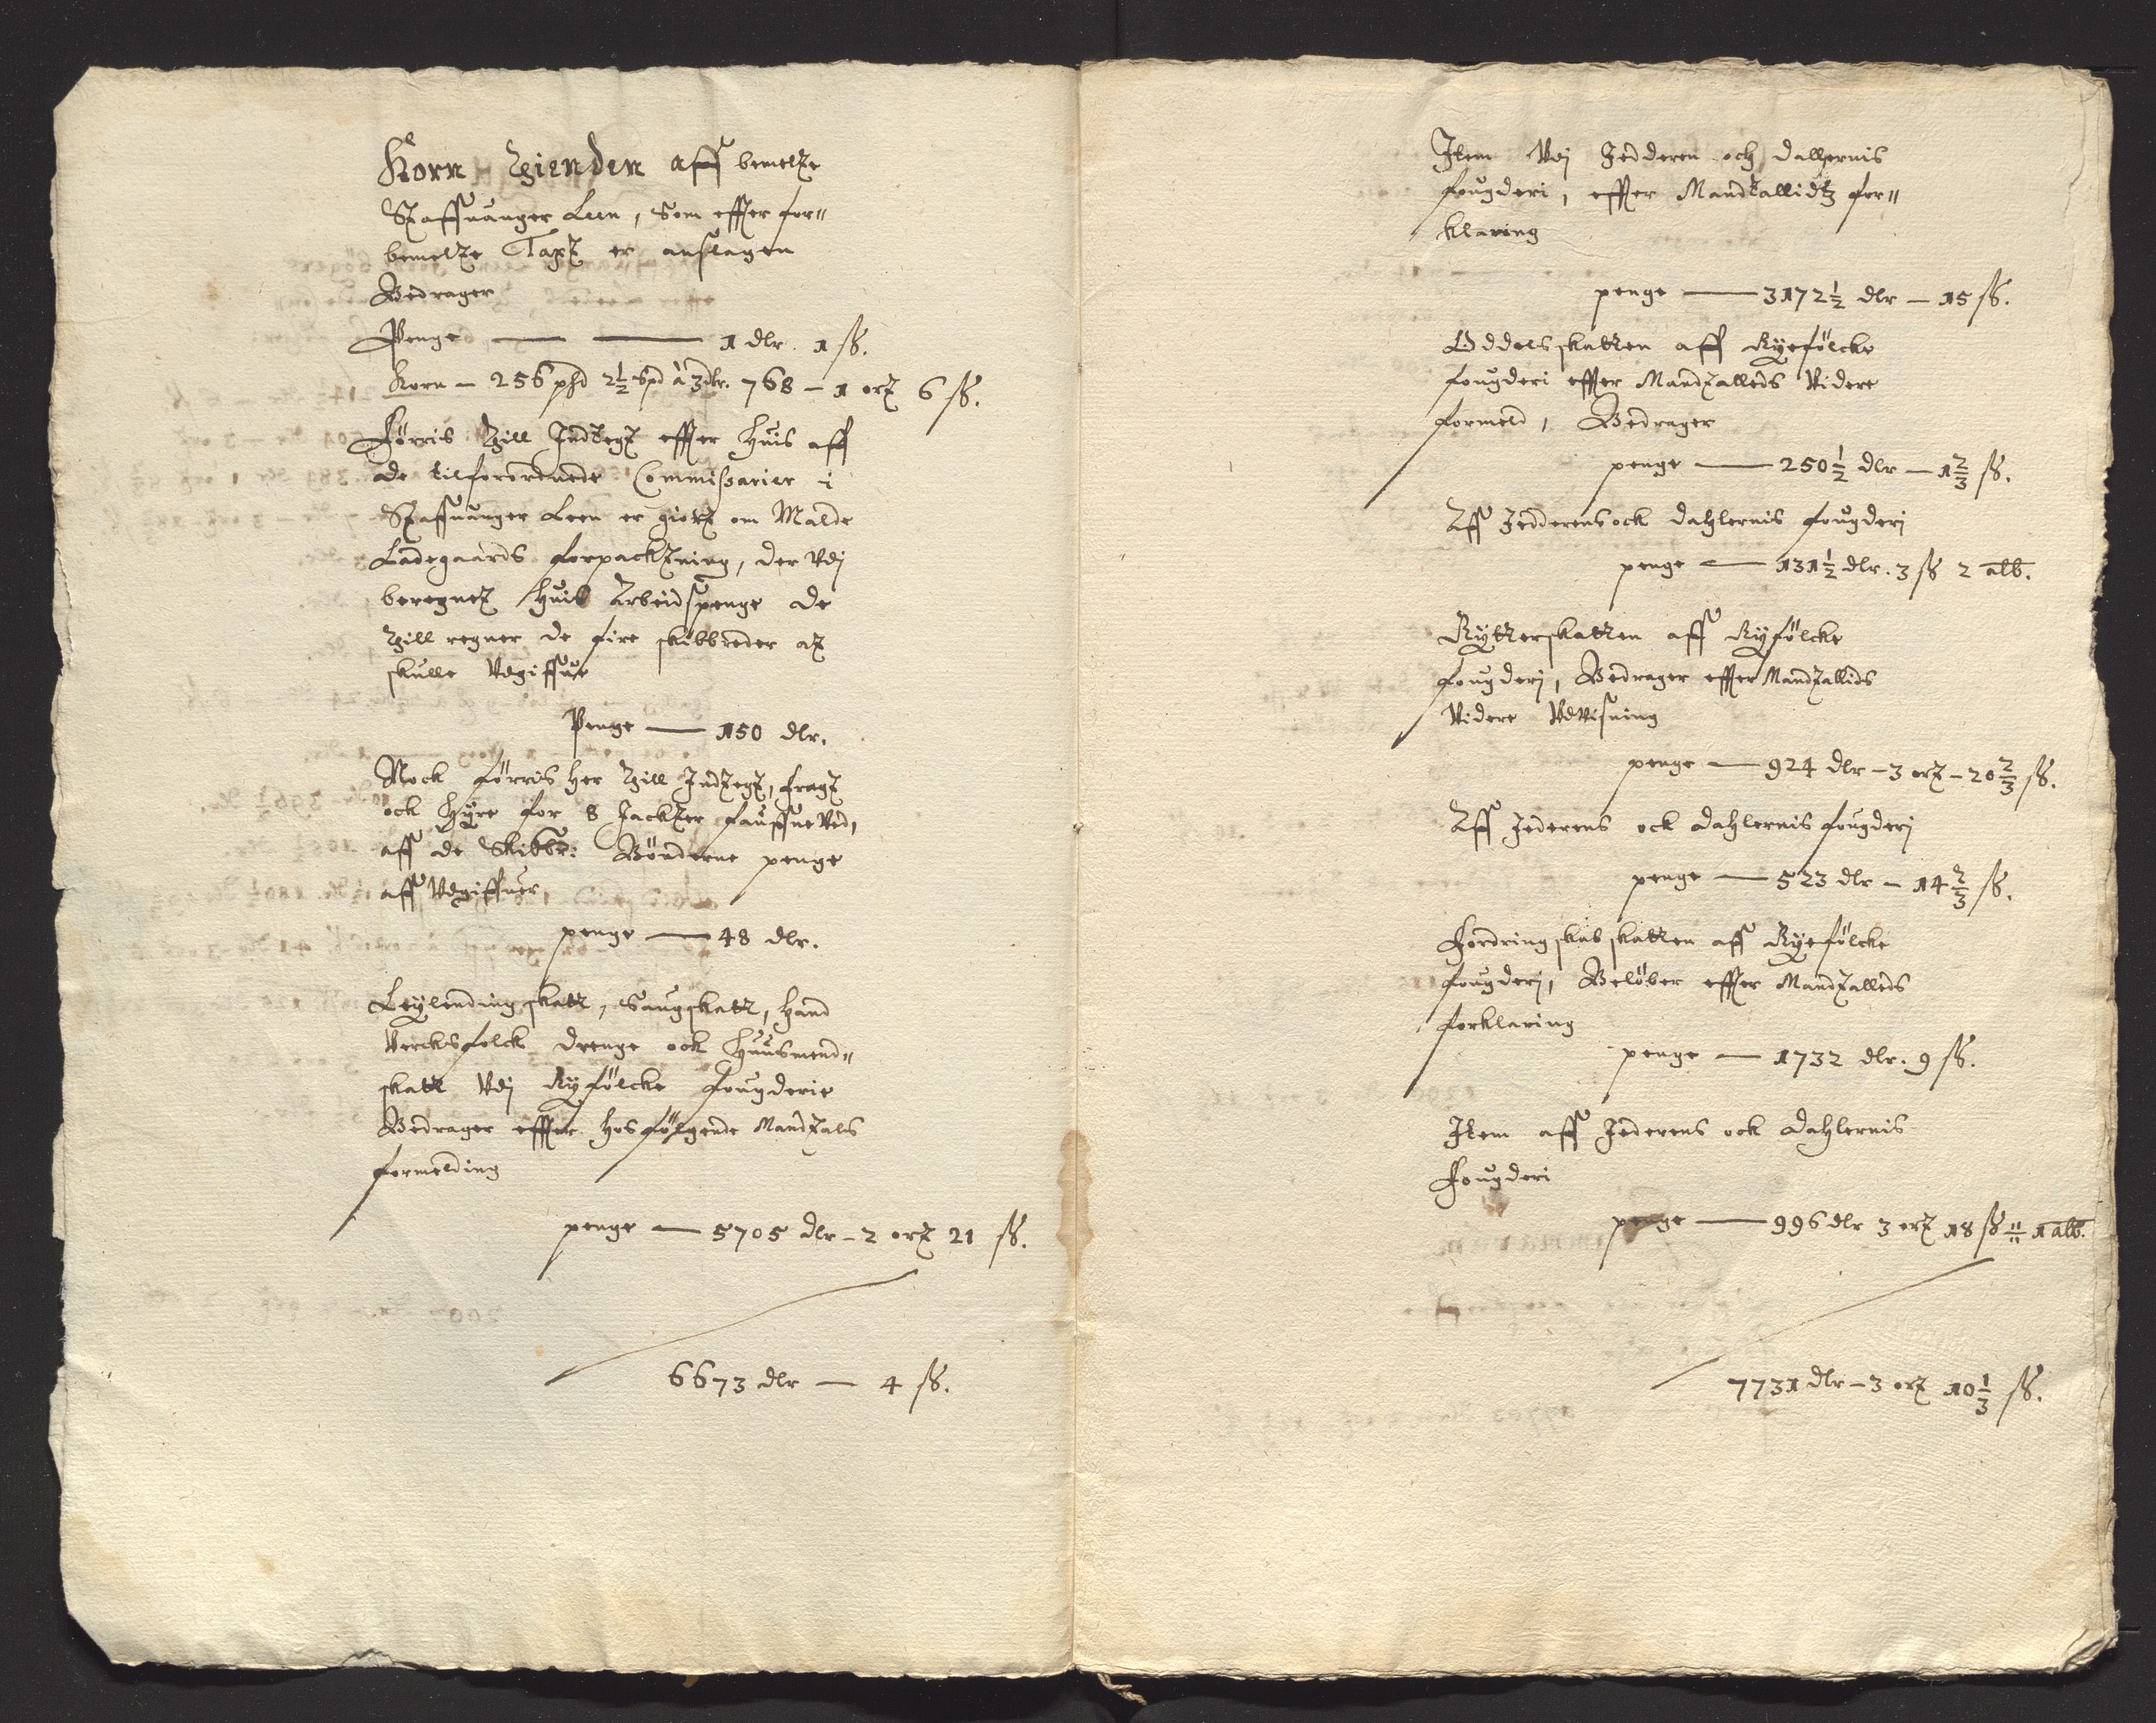 Korn Tienden aff bemelte
Staffuanger Leen, som effter for"
bemelte Taxt er anslagen
Bedrager
Penge — — 1 dlr. 1 ß.
Korn – 256 phd 2½ spd à 3 dlr. 768 – 1 ort 6 ß.
Førris till Indtegt effter huis aff
de tilforordnede Commissarier i
Staffuanger Leen er giort om Malde
Ladegaards forpacktning, der Vdj
beregnet huis Arbeidspenge de
till regner de fire skibbreder at
skulle Vdgiffue
Penge — 150 dlr.
Nock førris her till Indtegt, fragt
ock hyre for 8 Jackter
aff de Skibbr: Bønderne penge
aff Vdgiffuer
penge — 48 dlr.
Leylendingskatt, Saugskatt, Hand
Vercksfolck drenge ock Huusmend"
skatt Vdj Ryfølcke fougderie
Bedrager effter hosfølgende Mandtals
formelding
penge — 5705 dlr – 2 ort 21 ß.
6673 dlr — 4 ß.
Item Vdj Jedderen och dallernis
fougderi, effter Mandtallidtz for"
klaring
penge — 3172½ dlr — 15 ß.
Oddelsskatten aff Ryefølcke
fougderi effter Mandtalleds Videre
formeld, Bedrager
penge — 250½ dlr — 1⅔ ß.
Aff Jedderens ock dahlernis fougderj
penge — 131½ dlr. 3 ß 2 alb.
Rytterskatten aff Ryfølcke
fougderj, Bedrager effter Mandtallids
Videre Vdvisning
penge — 924 dlr – 3 ort – 20⅔ ß.
Aff Jederens ock dahlernis fougderj
penge — 523 dlr – 14⅔ ß.
Fordringskabskatten aff Ryefølcke
fougderj, Beløber effter Mandtalleds
forklaring
penge — 1732 dlr. 9 ß.
Item aff Jederens ock dahlernis
Fougderi
penge — 996 dlr 3 ort 18 ß 1 alb.
7731 dlr – 3 ort 10⅓ ß.